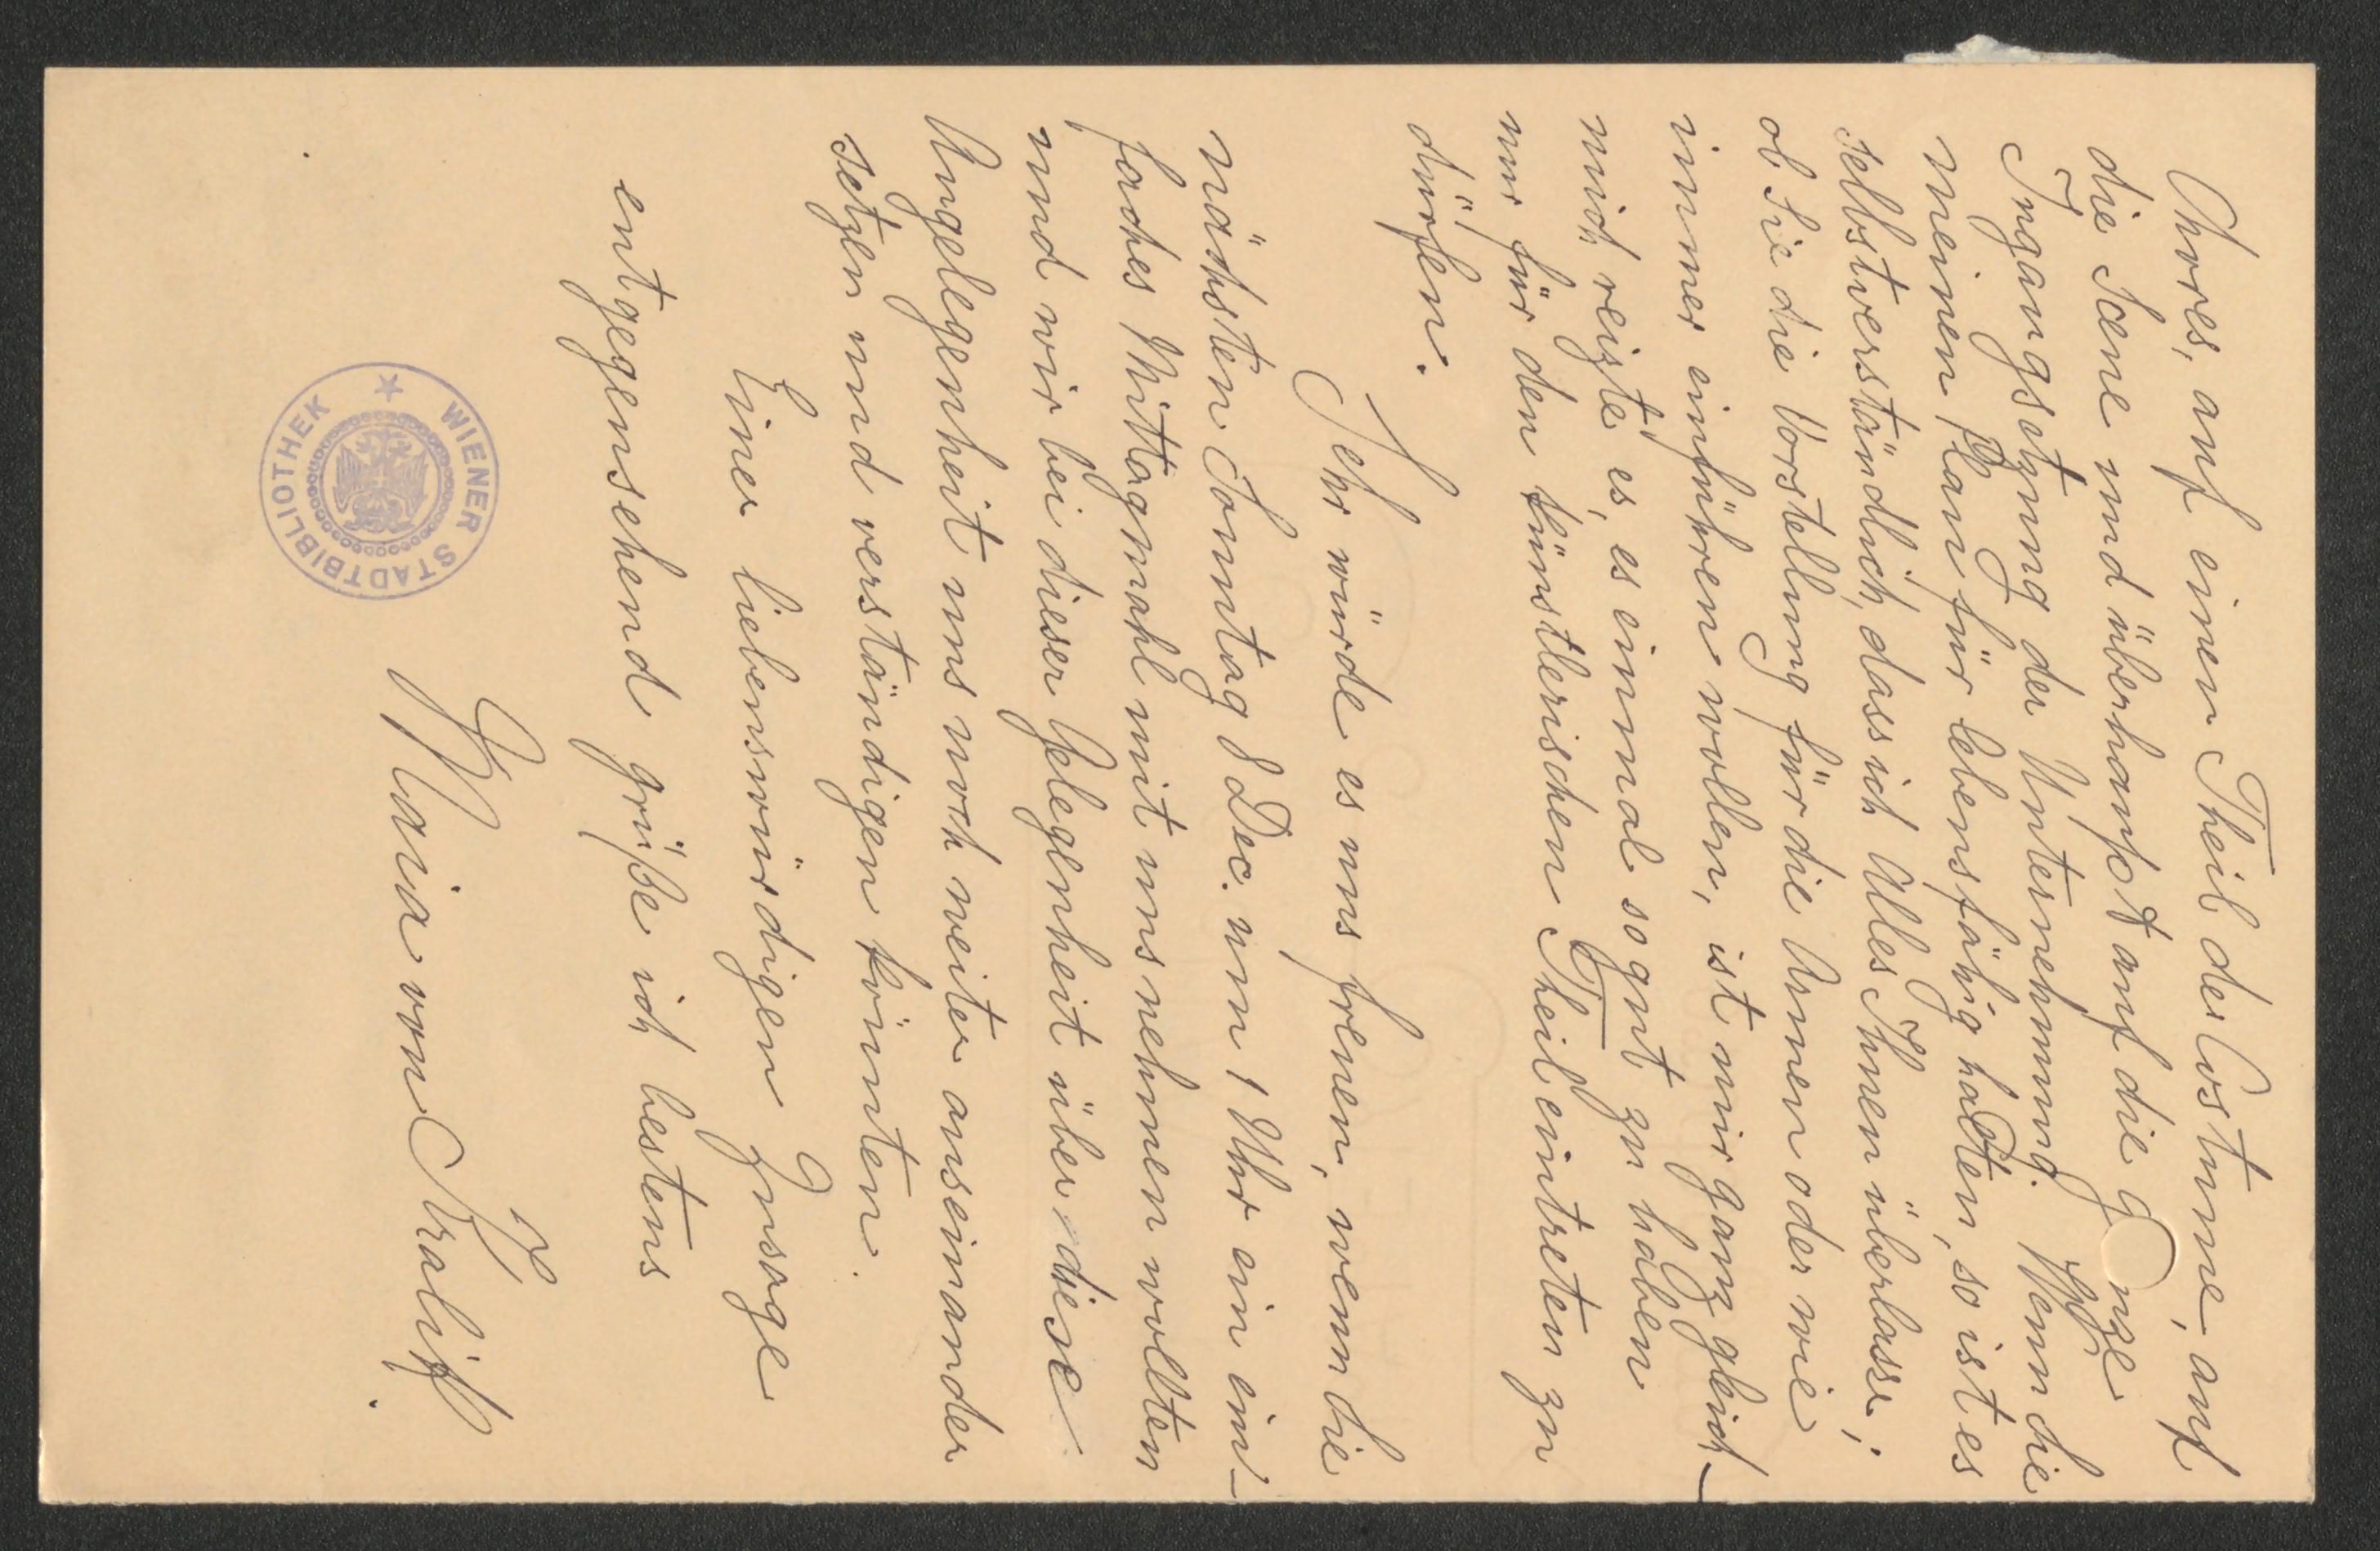 Chores, auf einen Theil der Costume, auf
die Scene und überhaupt auf die g nze
Ingangsetzung der Unternehmung. Wenn Sie
meinen Plan für lebensfähig halten, so ist es
selbstverständlich, dass ich Alles Ihnen überlasse;
ob Sie die Vorstellung für die Armen oder wie
immer einführen wollen, ist mir ganz gleich –
mich reizte es, es einmal so gut zu haben
nur für den künstlerischen Theil eintreten zu
dürfen.
Sehr würde es uns freuen, wenn Sie
nächsten Sonntag 8 Dec. um 1 Uhr ein ein-
faches Mittagmahl mit uns nehmen wollten
und wir bei dieser Gelegenheit über diese
Angelegenheit uns noch weiter auseinander
setzen und verständigen könnten.
Einer liebenswürdigen Zusage
entgegensehend grüße ich bestens
R
Maria von Kralik.
WIENER STADTBIBLIOTHEK